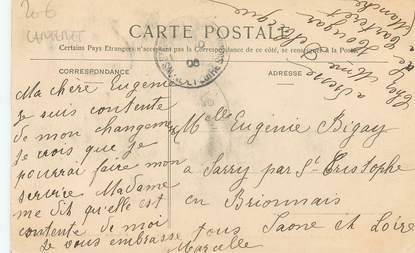 206
CAMARET
CARTE POSTALE
Certains Pays Etrangers n'acceptant pas la Correspondance de ce côté, se renseigner à la Poste
CORRESPONDANCE
ADRESSE
Ma chère Eugénie
je suis contente
de mon changement
je crois que je
pourrai faire mon
service Madame
me dit qu'elle est
contente de moi
Je vous embrasse tous
Marcelle
Melle Eugénie Bigay
a Sarry par St Cristophe
en Brionnais
Saone et Loire
Chez Mme